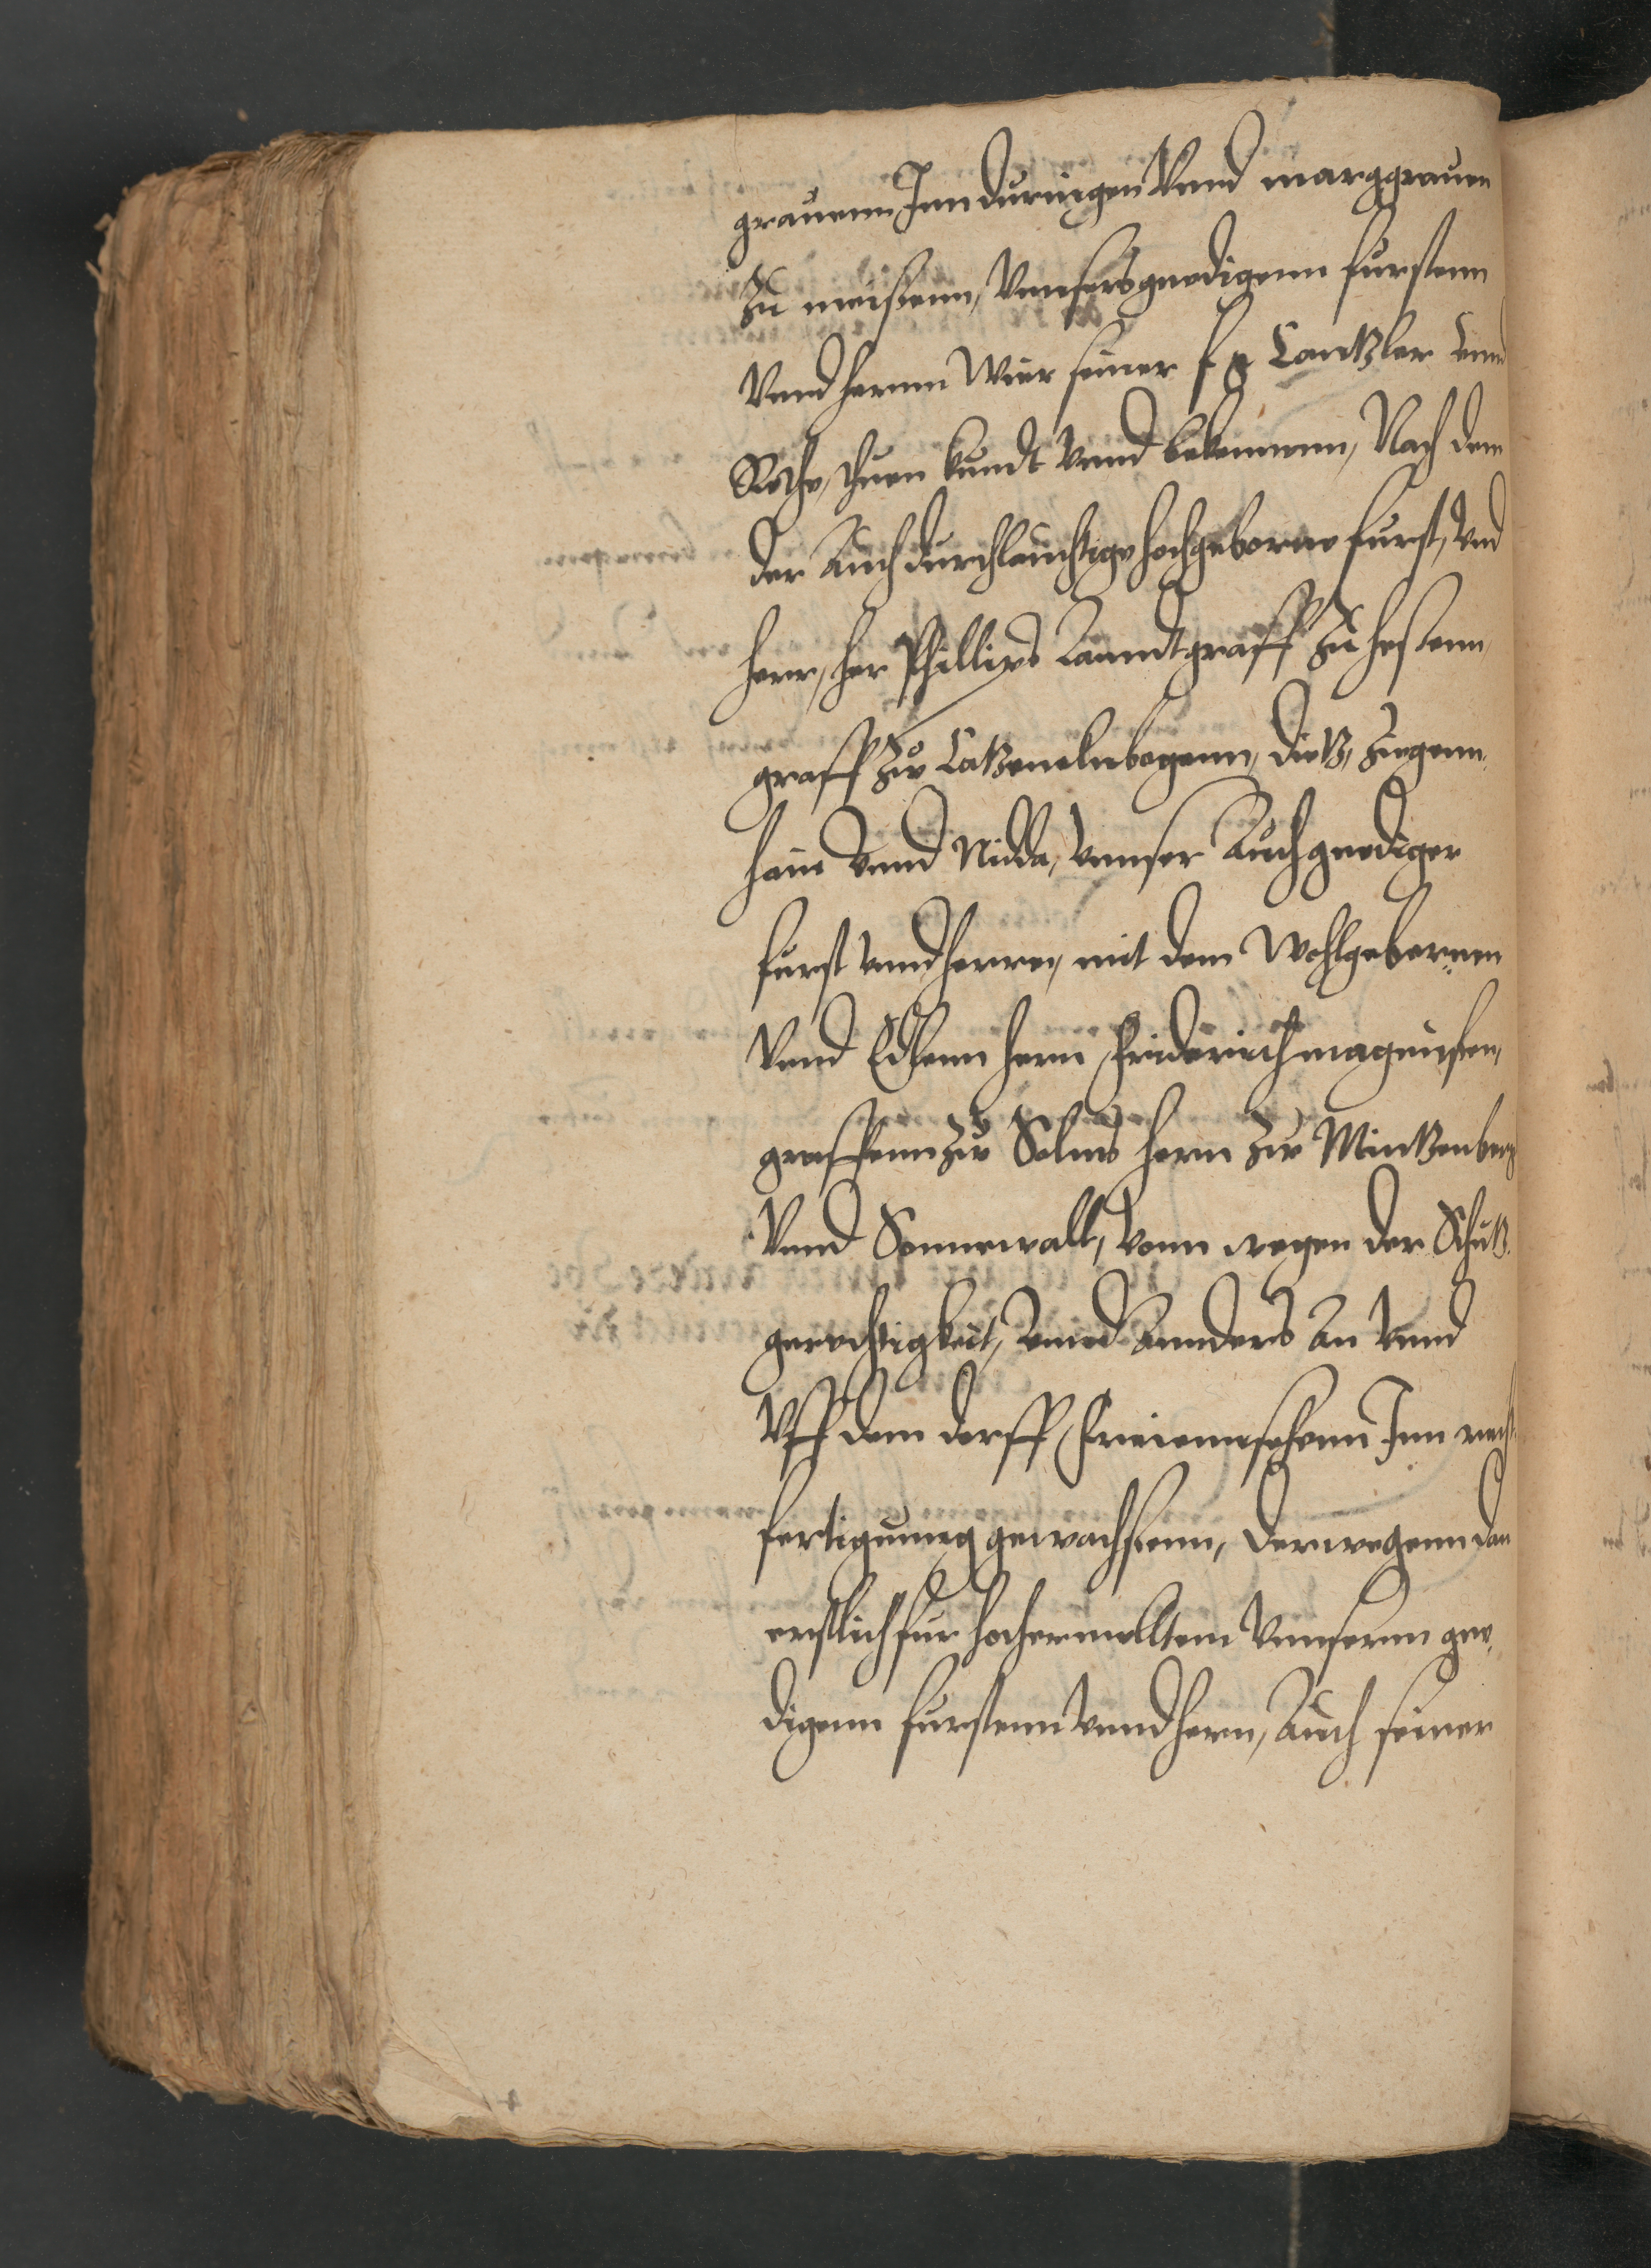 grauenn Inn duringen Vnnd marggrauen
Zu meissenn, Vnnsers gnedigenn furstenn
Vnnd hernn Wier seiner f g Cantzler Vnnd
Rethe, thuen kundt Vnnd bekennenn, Nach dem
der Auch durchleuchtige hochgeborne furst, Vnd
herr, her Phillips Lanndtgraff Zu hessenn
graff Zu Catzenelnbogenn, dietz, Ziegenn,
hain Vnnd Nidda, Vnnser Auch gnediger
furst Vnnd herre, mit dem Wohlgebornen
Vnnd Edlenn hern Friderich magnussen,
graffenn Zu Solms hern Zu Mintzenberg
Vnnd Sonnewalt, Vonn wegen der Schutz
gerechtigkeit, Vnnd Annders An Vnnd
Vff dem dorff Freienseehenn Inn recht
fertigunng gewachssenn, derwegenn dan
erstlich fur hochermelltem Vnnserm gne,
digenn furstenn Vnnd hern, Auch seiner